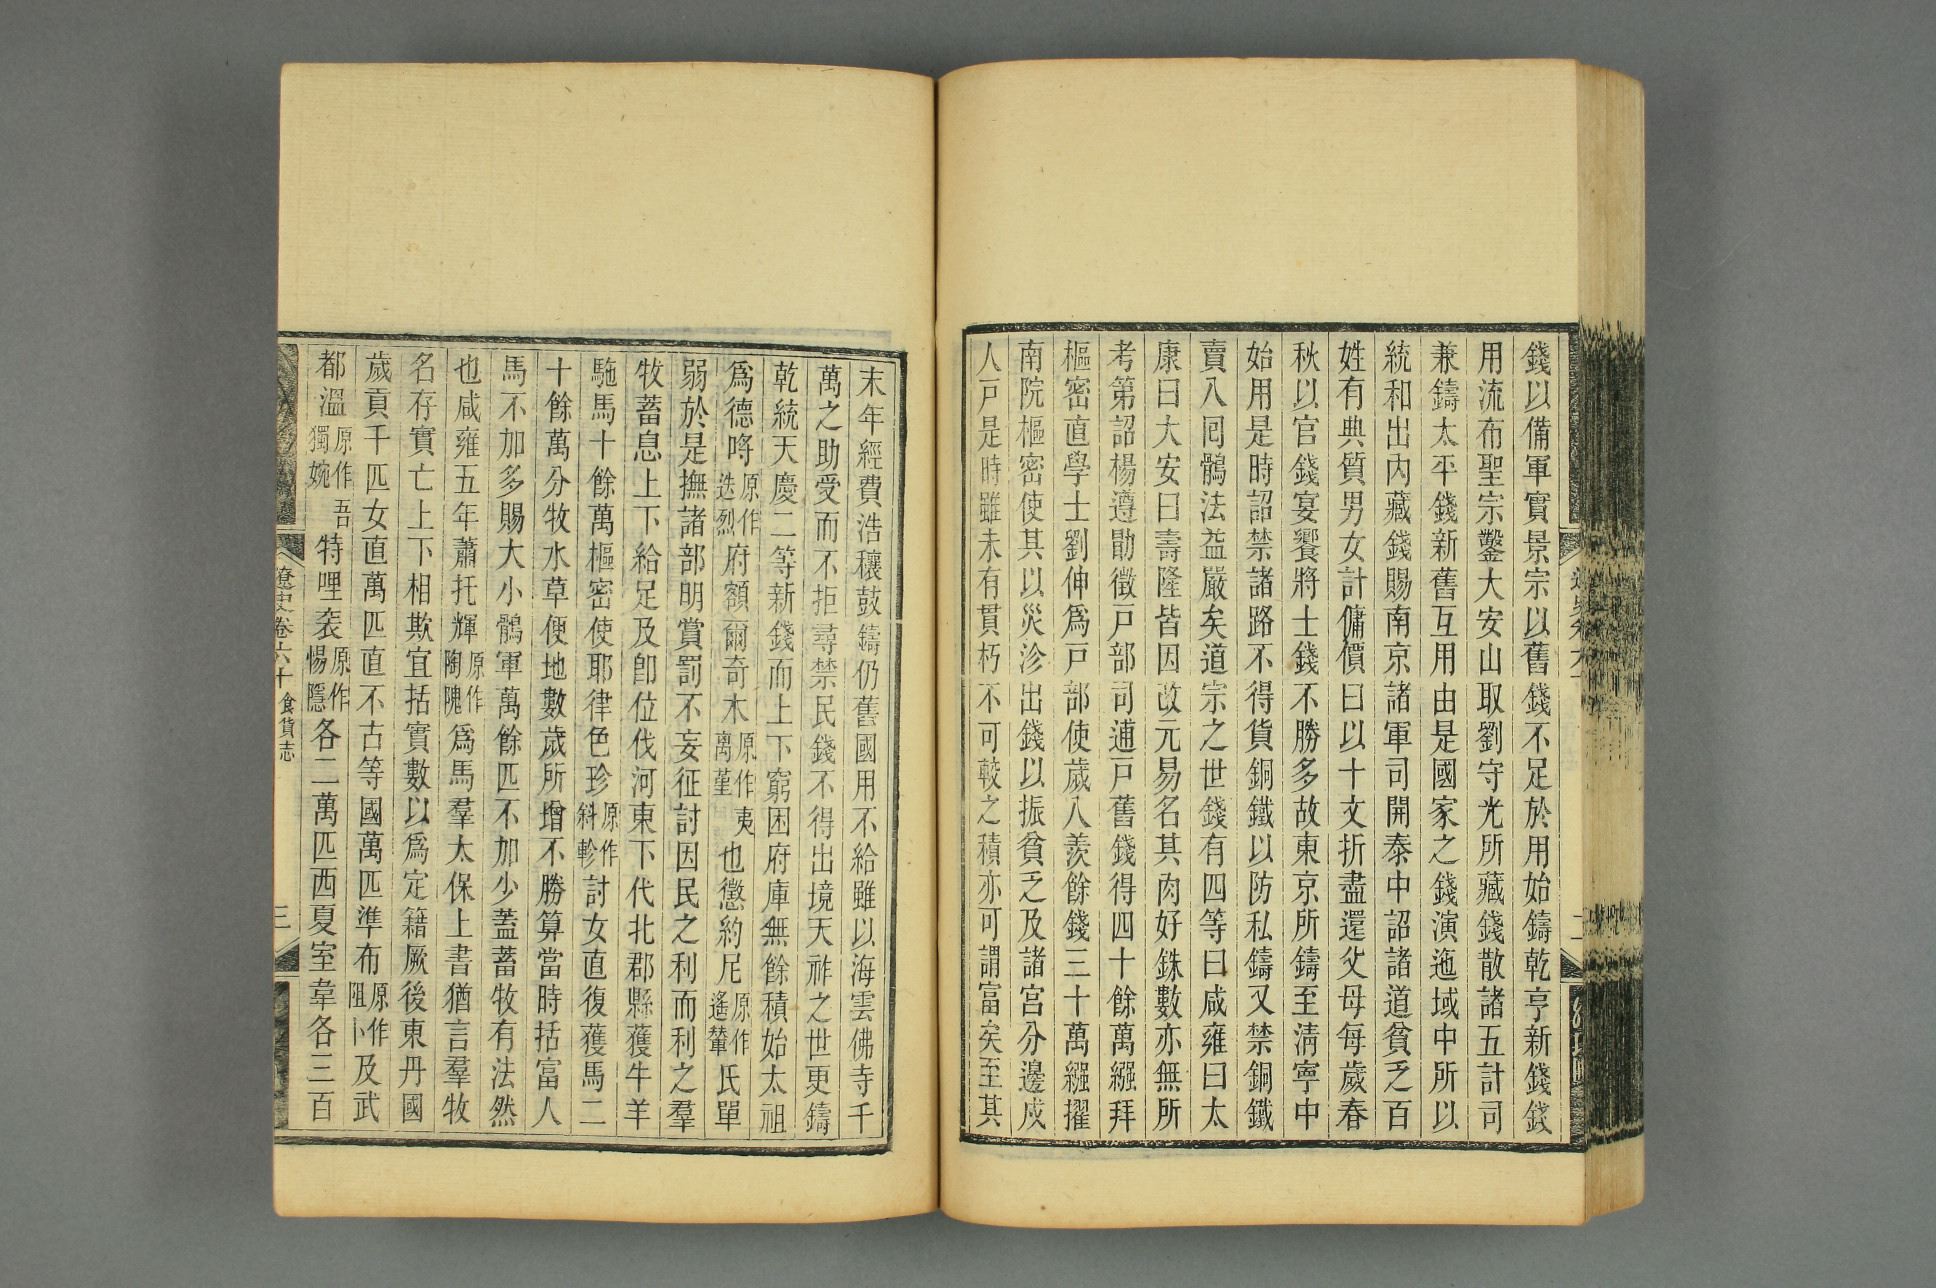 錢以備軍實景宗以舊錢不足於用始鑄乾亨新錢錢
用流布聖宗鑿大安山取劉守光所藏錢散諸五計司
兼鑄太平錢新舊互用由是國家之錢演迤域中所以
統和出內藏錢賜南京諸軍司開泰中詔諸道貧乏百
姓有典質男女計傭價日以十文折盡還父母每歲春
秋以官錢宴饗將士錢不勝多故東京所鑄至清寧中
始用是時詔禁諸路不得貨銅鐵以防私鑄又禁銅鐵
賣入回鶻法益嚴矣道宗之世錢有四等曰咸雍曰太
康曰大安曰壽隆皆因改元易名其肉好銖數亦無所
考第詔楊遵勛徵戸部司逋戸舊錢得四十餘萬繦拜
樞密直學士劉伸爲戸部使歲入羨餘錢三十萬繦擢
南院樞密使其以災沴出錢以振貧乏及諸宮分邊戍
人戸是時雖未有貫朽不可較之積亦可謂富矣至其
末年經費浩穰鼓鑄仍舊國用不給雖以海雲佛寺千
萬之助受而不拒尋禁民錢不得出境天祚之世更鑄
乾統天慶二等新錢而上下窮困府庫無餘積始太祖
爲德哷原作迭烈府額爾奇木原作夷离堇也懲約尼原作遙輦氏單
弱於是撫諸部明賞罰不妄征討因民之利而利之羣
牧蓄息上下給足及卽位伐河東下代北郡縣獲牛羊
駞馬十餘萬樞密使耶律色珍原作斜軫討女直復獲馬二
十餘萬分牧水草便地數歲所增不勝算當時括富人
馬不加多賜大小鶻軍萬餘匹不加少蓋蓄牧有法然
也咸雍五年蕭托輝原作陶隗爲馬羣太保上書猶言羣牧
名存實亡上下相欺宜括實數以爲定籍厥後東丹國
歲貢千匹女直萬匹直不古等國萬匹準布原作阻卜及武
都溫原作吾獨婉特哩袞原作惕隱各二萬匹西夏室韋各三百
遼史卷六十 食貨志
三